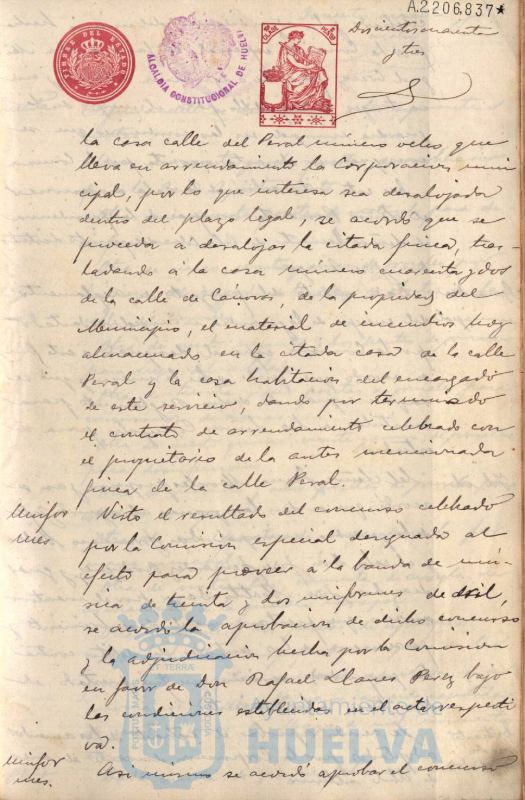 A.2206.837*
TIMBRE DEL ESTADO
ALCALDÍA CONSTITUCIONAL DE HUELVA
Doscientos cuarenta
y tres
la casa calle del Peral número ocho, que
lleva en arrendamiento la Corporación muni
cipal, por lo que interesa sea desalojada
dentro del plazo legal, se acordó que se
proceda á desalojar la citada finca, tras-
ladando á la casa número cuarenta y dos
de la calle de Cánovas, de la propiedad del
Municipio, el material de incendios hoy
almacenado en la citada casa de la calle
Peral y la casa habitación del encargado
de este servicio, dando por terminado
el contrato de arrendamiento celebrado con
el propietario de la antes mencionada
finca de la calle Peral.
Unifor
mes
Visto el resultado del concurso celebrado
por la Comisión especial designada al
efecto para proveer á la banda de mú-
sica de treinta y dos uniformes de dril,
se acordó la aprobación de dicho concurso
y la adjudicación hecha por la Comisión
en favor de Don Rafael Llanes Perez bajo
las condiciones establecidas en el acta respecti
va.
Unifor
mes.
Asi mismo se acordó aprobar el concurso
HUELVA